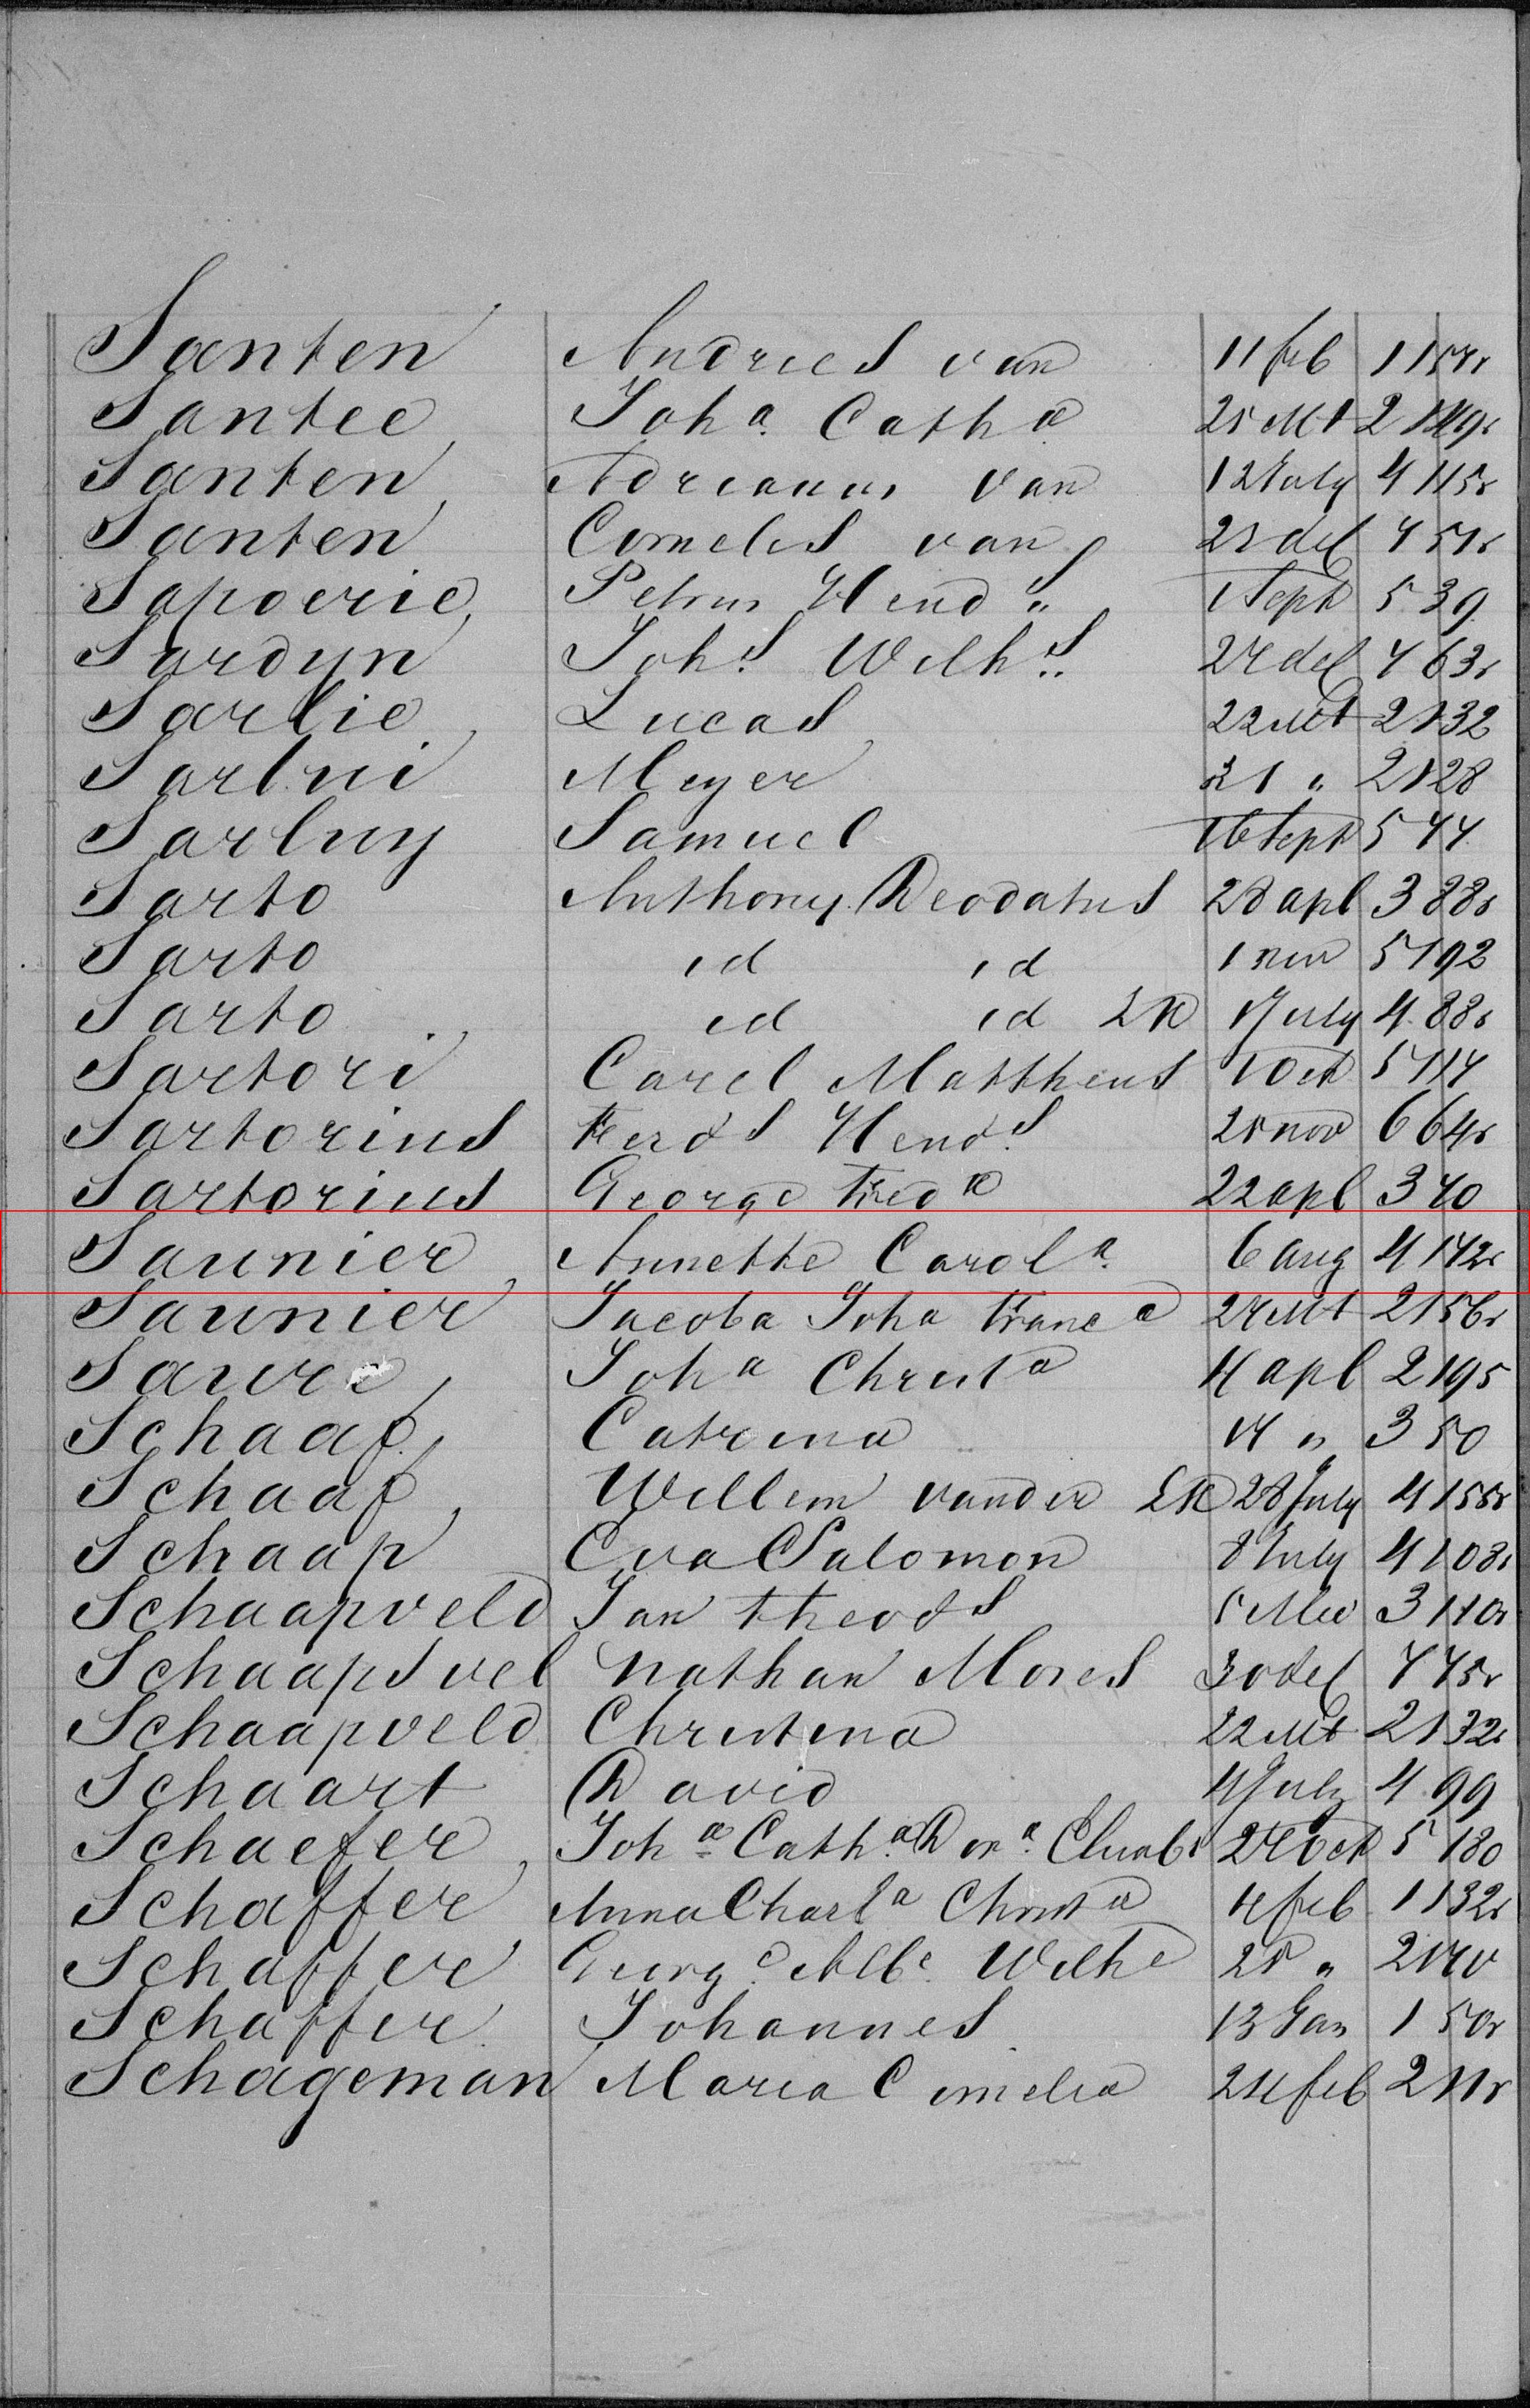 Santen Andries van 11 feb 1 157v
Santee, Joha Catha 25 Mt 2 149v
Santen, Adrianus van 12 July 4 115v
Santen Cornelis van 23 dec 7 51v
Sapoerie, Petrus Hend s 1 Sept 5 39
Sardyn Johs Wilhs 24 dec 7 63v
Sarlie, Lucas 22 Mt 2 132
Sarlui Meyer 21 " 2 128
Sarluy Samuel 16 Sept 5 77
Sarto Anthony Deodatus 28 apl 3 88v
Sarto id id 1 nov 5 192
Sarto id id LK 1 July 4 88v
Sartori Carel Mattheus 1 Oct 5 117
Sartorius Ferds Hends 25 nov 6 64v
Sartorius George Fredk 22 apl 3 70
Saunier, Annette Carola 6 aug 4 172v
Saunier Jacoba Joha Franca 24 Mt 2 156v
Saure, Joha Christa 4 apl 2 195
Schaaf, Catrina 14 " 3 50
Schaaf, Willem vander LK 28 July 4 155v
Schaap Eva Salomon 8 July 4 108v
Schaapveld Jan Theods 5 Mei 3 110v
Schaapsvel Nathan Moses 30 dec 7 75v
Schaapveld Christina 22 Mt 2 132v
Schaart David 4 July 4 99
Schaefer, Joha Catha Dora Elisabt 24 Oct 5 180
Schaffer Anna Charla Christa 4 feb 1 132v
Schaffer George Albe Wilhe 25 " 2 170
Schaffer Johannes 13 Jan 1 50v
Schageman Maria Cornelia 24 feb 2 11v